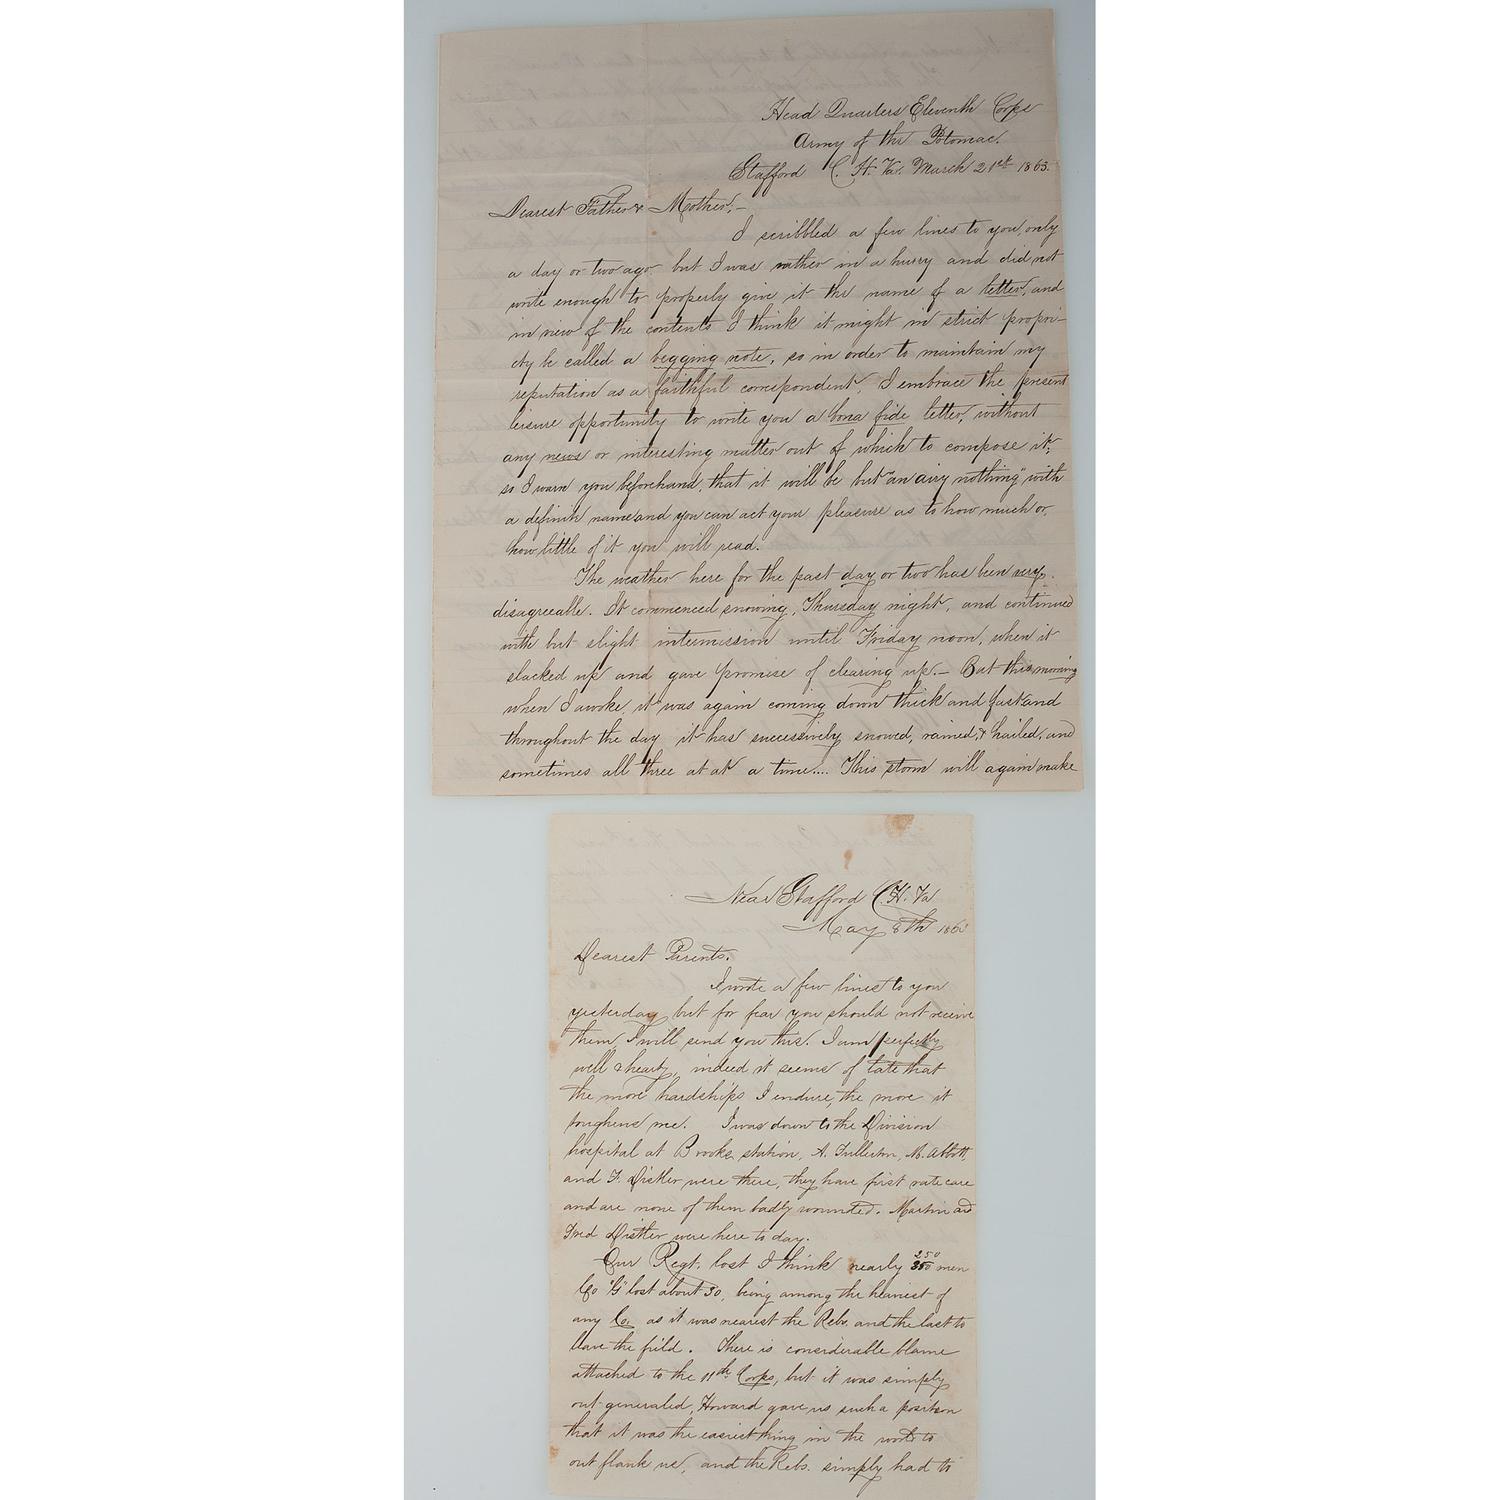 Head Quarters Eleventh Corps
Army of the Potomac.
Stafford C. H. Va. March 21st 1863.
Dearest Father & Mother,-
I scribbled a few lines to you, only
a day or two ago but I was rather in a hurry and did not
write enough to properly give it the name of a letter, and
in view of the contents I think it might in strict propri-
ety be called a begging note, so in order to maintain my
reputation as a faithful correspondent, I embrace the present
leisure opportunity to write you a bona fide letter, without
any news or interesting matter out of which to compose it;
so I warn you beforehand, that it will be but "an airy nothing" with
a definite name and you can act your pleasure as to how much or
how little of it you will read.
The weather here for the past day or two has been very
disagreeable. It commenced snowing, Thursday night, and continued
with but slight intermission until Friday noon, when it
slacked up and gave promise of clearing up.- But this morning
when I awoke, it was again coming down thick and fast and
throughout the day it has successively snowed, rained, & hailed, and
sometimes all three at at a time.... This storm will again make
Near Stafford C.H. Va
May 8th 186
Dearest Parents.
I wrote a few lines to you
yesterday but for fear you should not receive
them, I will send you this. I am perfectly
well & hearty, indeed it seems of late that
the more hardships I endure, the more it
toughens me. I was down to the Division
hospital at Brooks station, A. Fullerton, M. Abbott,
and F. Distler were there, they have first rate care
and are none of them badly wounded. Martin and
Fred Distler were here to day.
Our Regt. lost I think nearly 250 men
Co "G" lost about 30, being among the heaviest of
any Co. as it was nearest the Rebs. and the last to
leave the field. There is considerable blame
attached to the 11th Corps, but it was simply
out generaled, Howard gave us such a position
that it was the easiest thing in the world to
out flank us, and the Rebs. simply had to